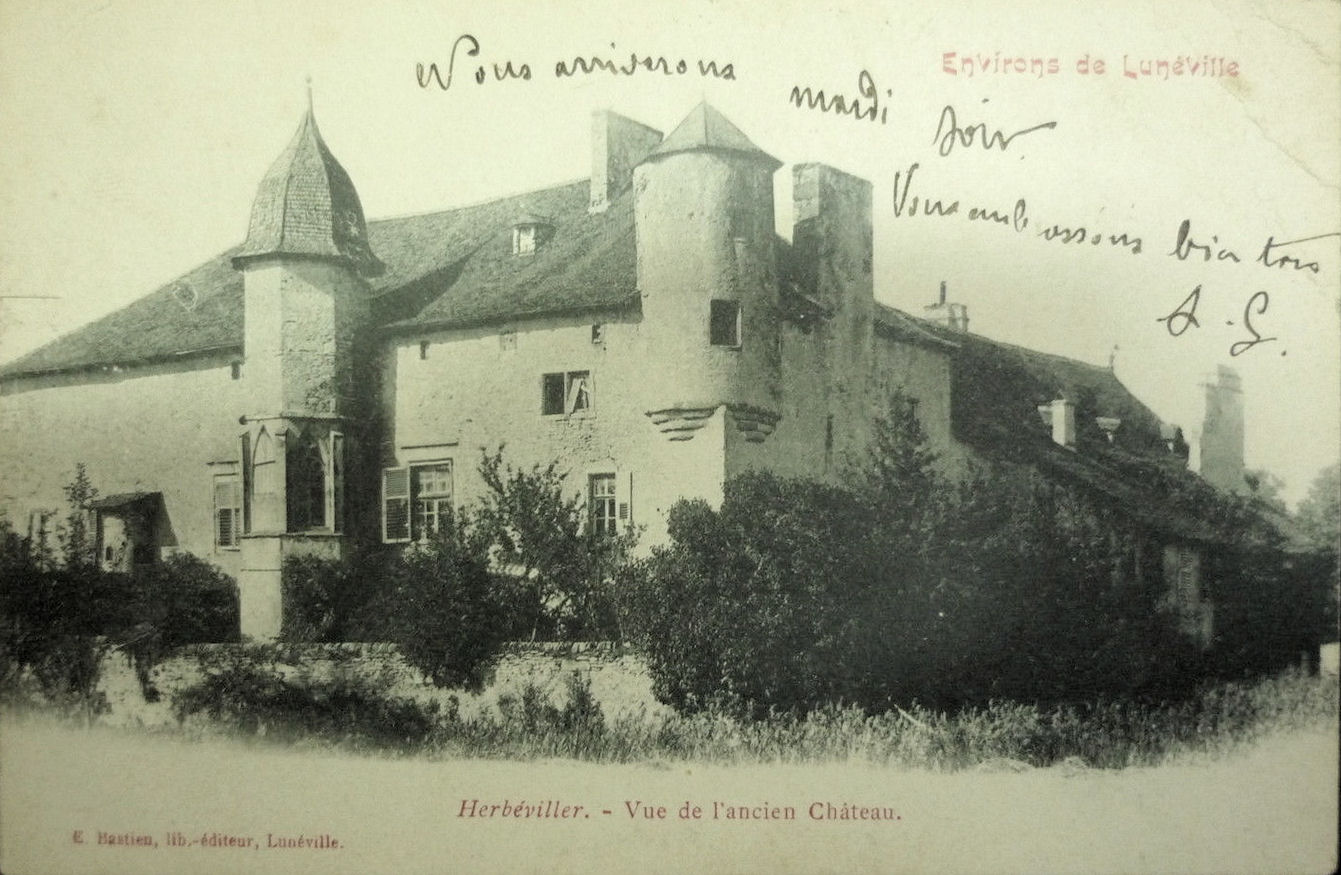 Environs de Lunéville
Nous arriverons mardi soir
Vous embrassons bien tous
A. G.
Herbéviller. - Vue de l'ancien Château.
E. Bastien, lib.-éditeur, Lunéville.